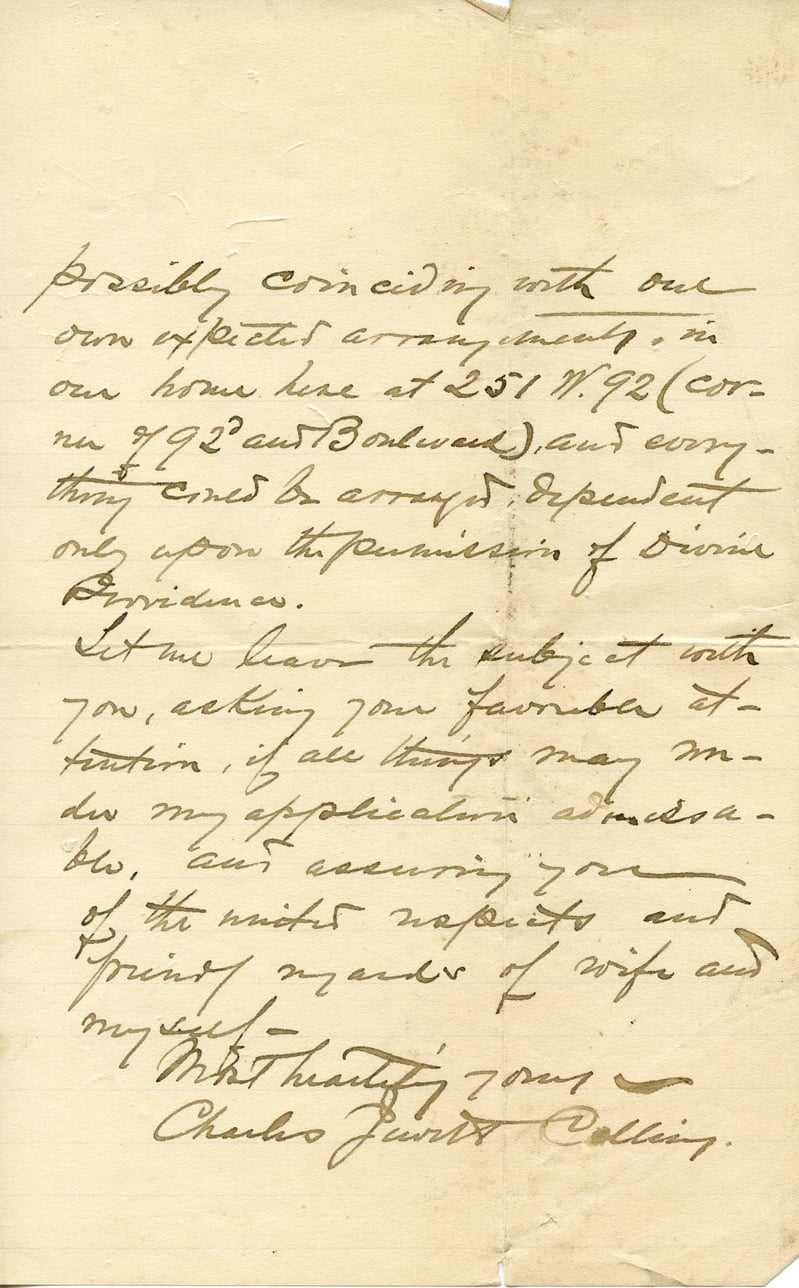 possibly coinciding with our
own expected arrangements, in
our home here at 251 W. 92 (cor-
ner of 92d and Boulevard), and every-
thing could be arranged, dependent
only upon the permission of Divine
Providence.
Let me leave the subject with
you, asking your favorable at-
tention, if all things may ren-
der my application admissa-
ble, and assuring you
of the united respects and
friendly regards of wife and
myself -
Most heartily yours
Charles Jewett Collins.